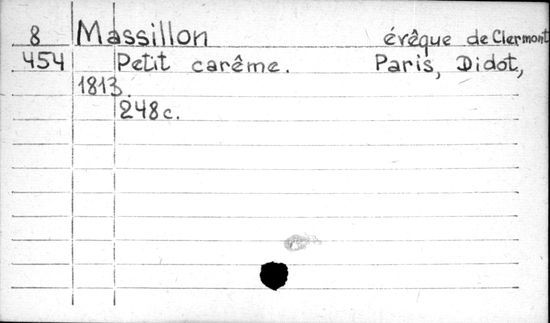 8 Massillon évêque de Clermont
454 Petit carême. Paris, Didot,
1813.
248c.